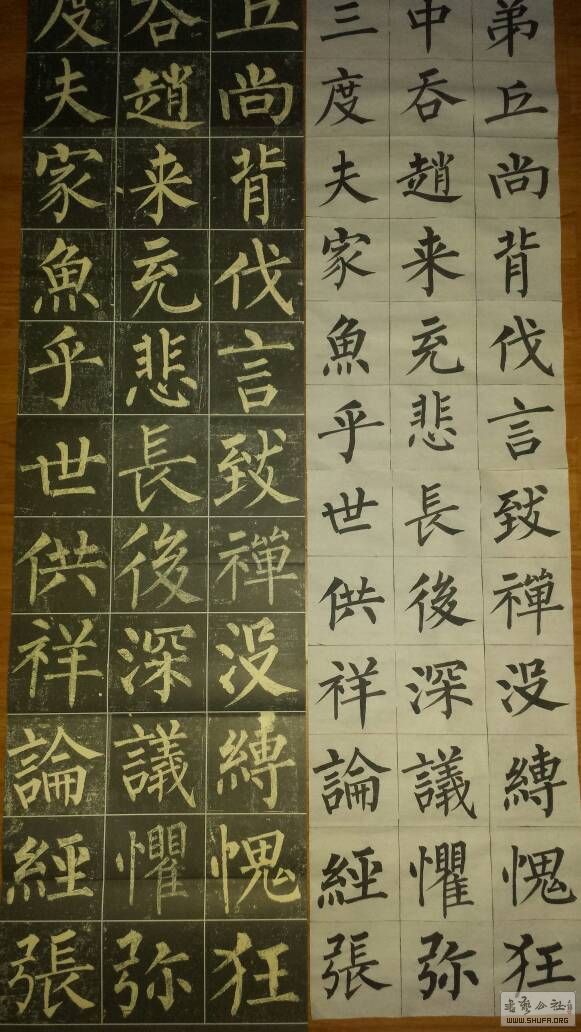 弟丘尚背伐言致禪没縛愧狂
中吞趙来充悲長後深議懼弥
三度夫家魚乎世供祥論經張
丘尚背伐言致禪没縛愧狂
吞趙来充悲長後深議懼弥
度夫家魚乎世供祥論經張
书艺公社
WWW.SHUFA.ORG